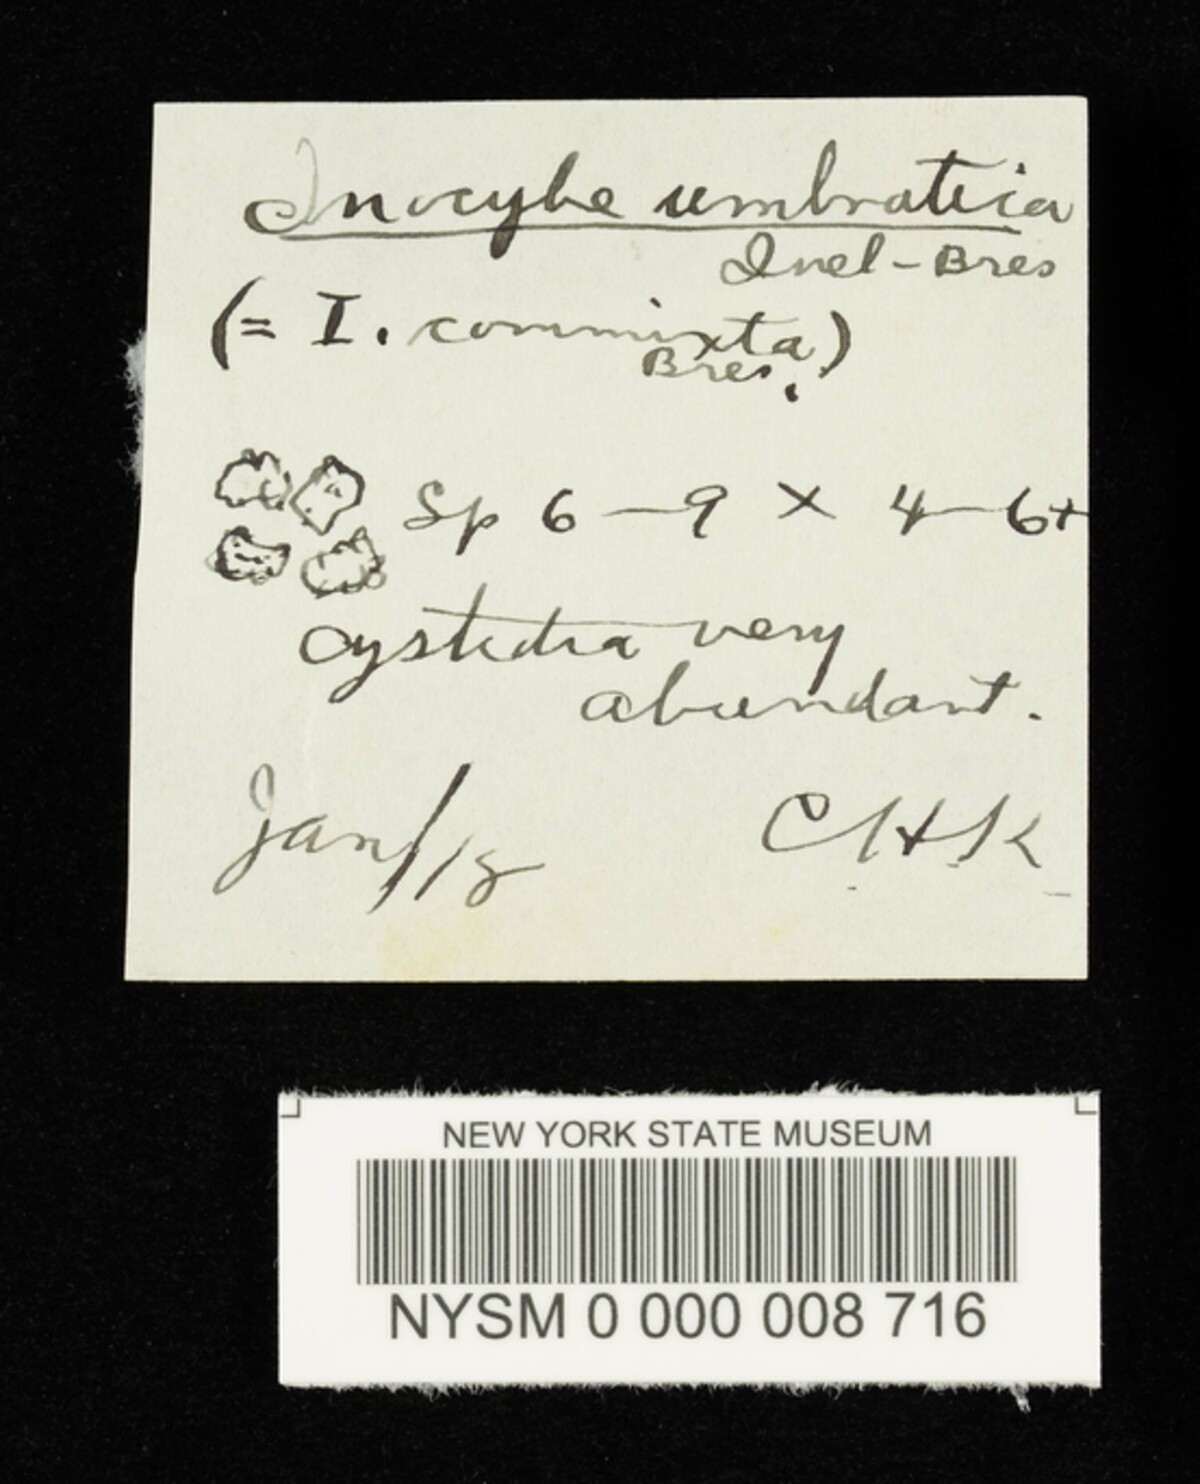 Inocybe umbratica
Quel-Bres
(= I. commixta)
Bres.
Sp 6-9 × 4-6+
cystidia very
abundant.
Jan/18
CHK
NEW YORK STATE MUSEUM
NYSM 0 000 008 716